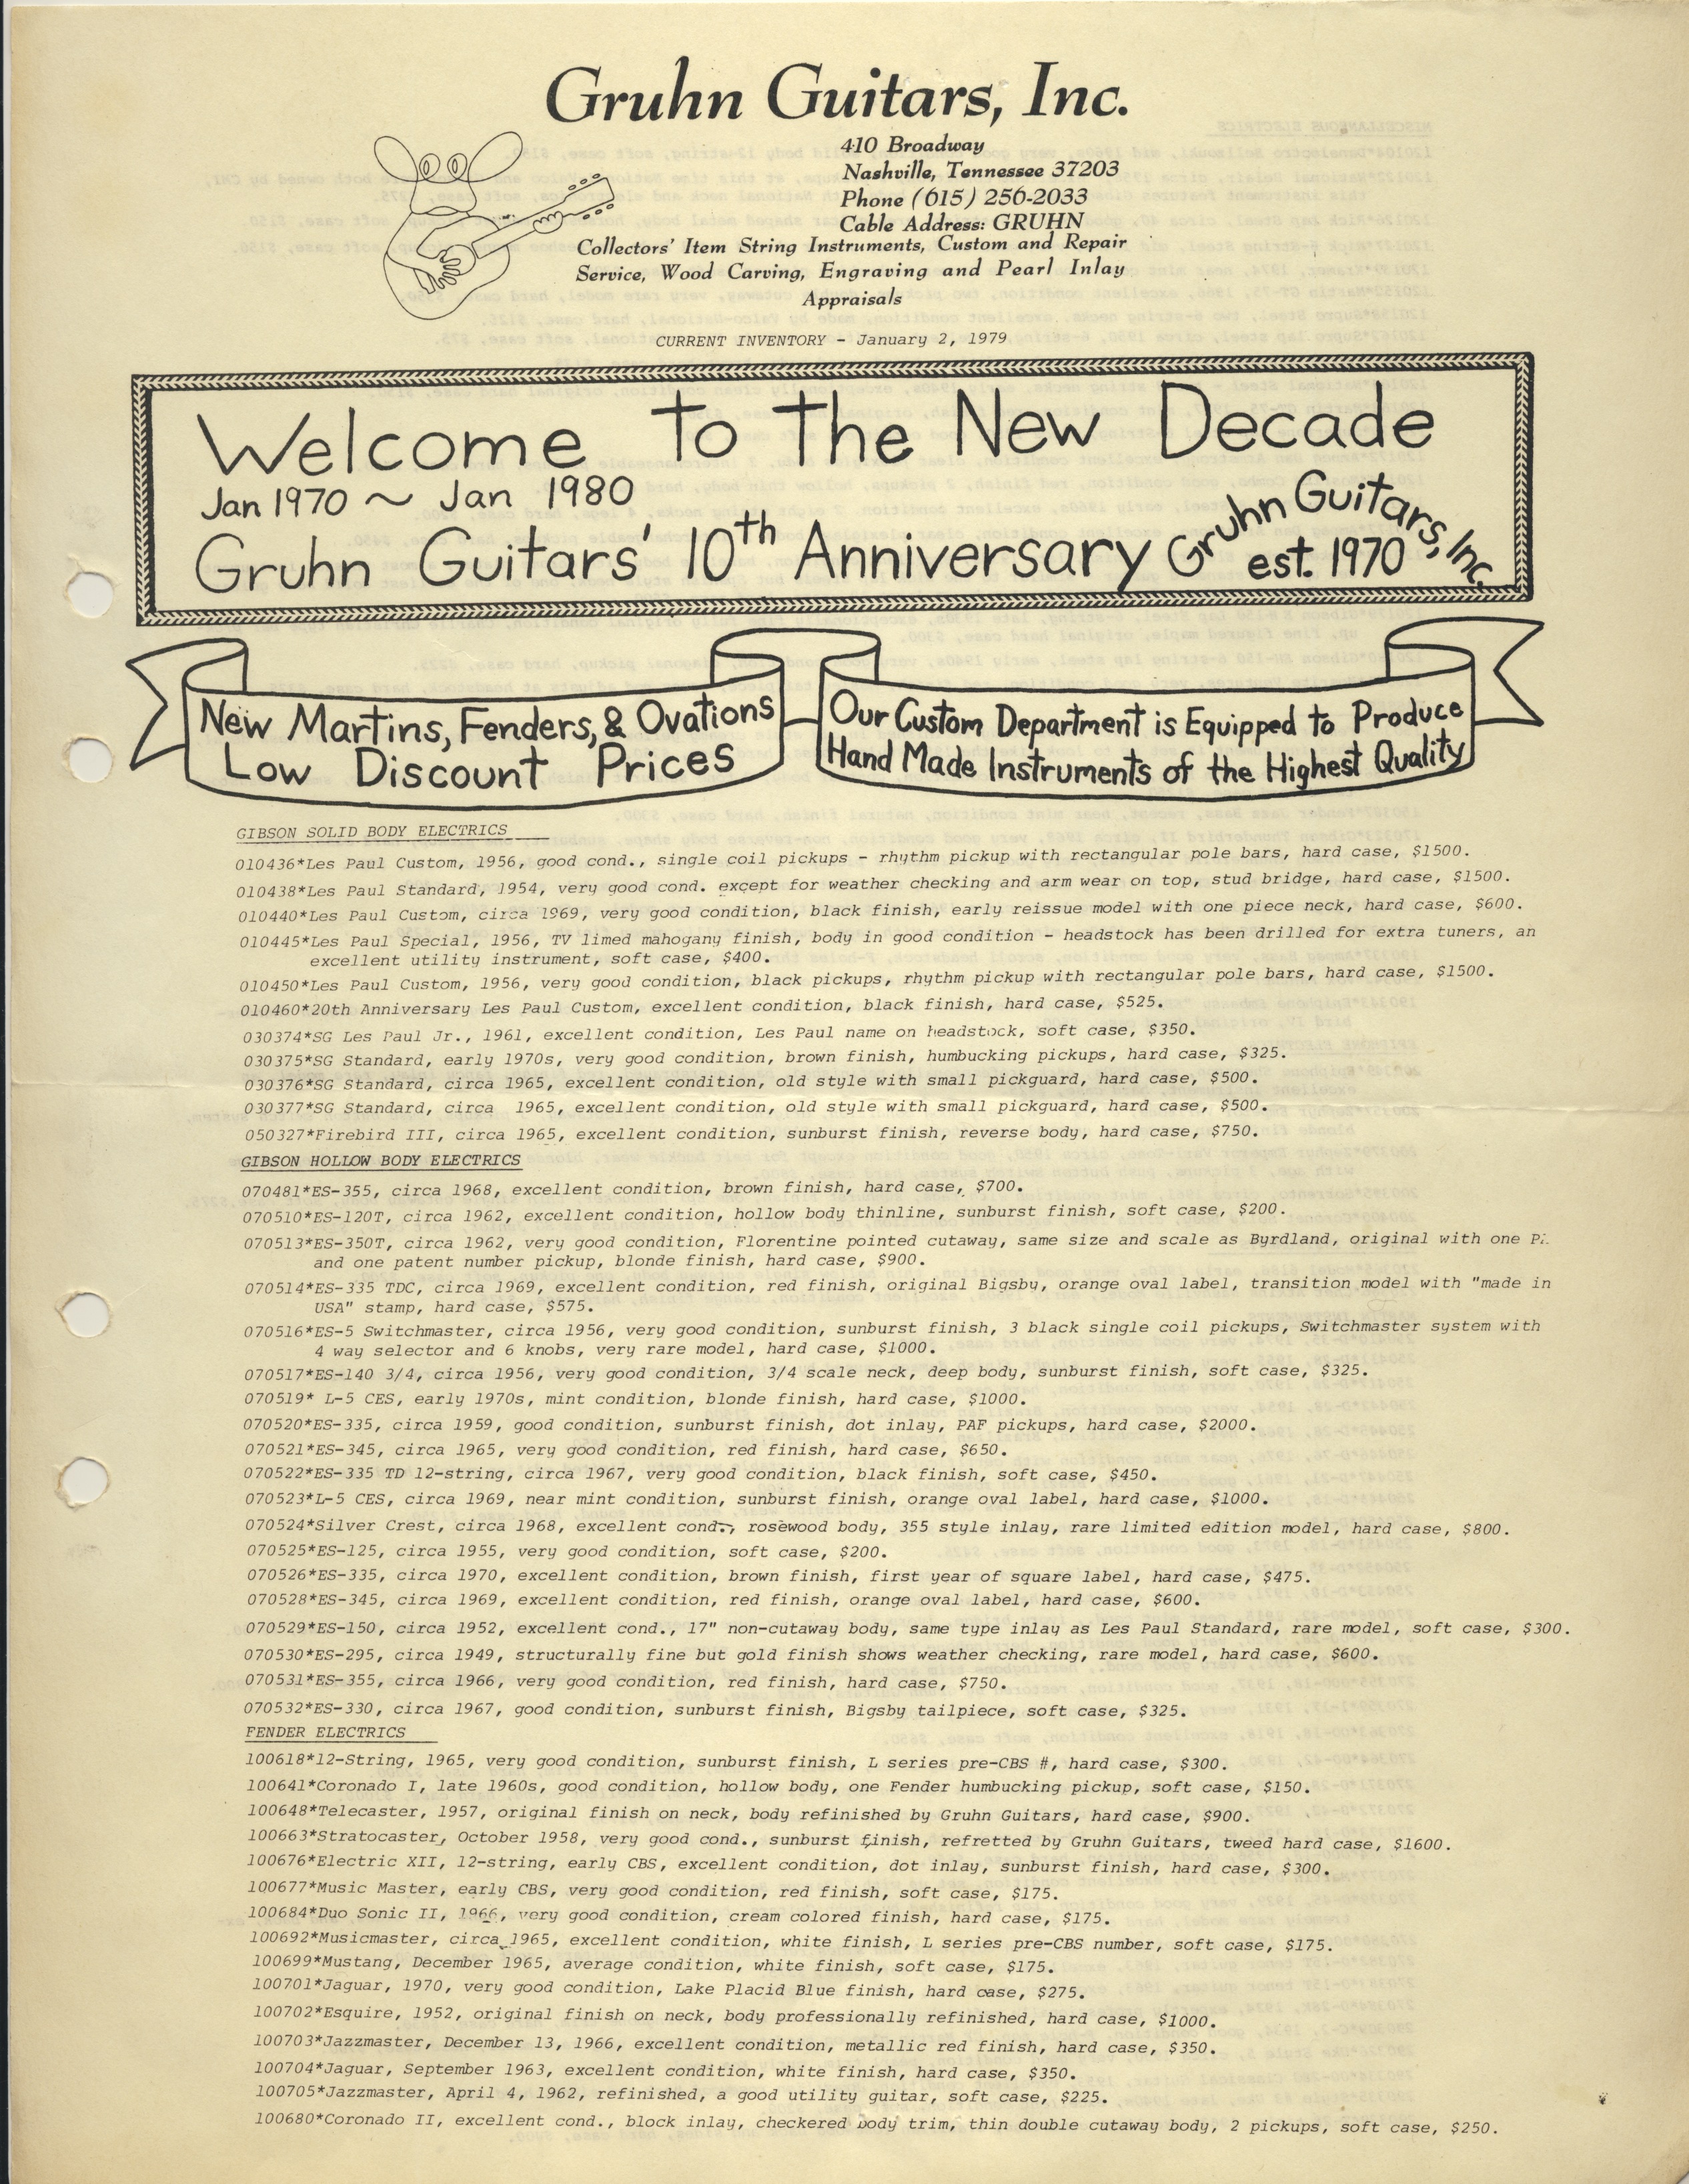 Gruhn Guitars, Inc.
410 Broadway
Nashville, Tennessee 37203
Phone (615) 256-2033
Cable Address: GRUHN
Collectors' Item String Instruments, Custom and Repair
Service, Wood Carving, Engraving and Pearl Inlay
Appraisals
CURRENT INVENTORY - January 2, 1979
Welcome To The New Decade
Jan 1970 ~ Jan 1980
Gruhn Guitars' 10th Anniversary
Gruhn Guitars, Inc.
est. 1970
New Martins, Fenders, & Ovations
Low Discount Prices
Our Custom Department is Equipped to Produce
Hand Made Instruments of the Highest Quality
GIBSON SOLID BODY ELECTRICS
010436*Les Paul Custom, 1956, good cond., single coil pickups - rhythm pickup with rectangular pole bars, hard case, $1500.
010438*Les Paul Standard, 1954, very good cond. except for weather checking and arm wear on top, stud bridge, hard case, $1500.
010440*Les Paul Custom, circa 1969, very good condition, black finish, early reissue model with one piece neck, hard case, $600.
010445*Les Paul Special, 1956, TV limed mahogany finish, body in good condition - headstock has been drilled for extra tuners, an
excellent utility instrument, soft case, $400.
010450*Les Paul Custom, 1956, very good condition, black pickups, rhythm pickup with rectangular pole bars, hard case, $1500.
010460*20th Anniversary Les Paul Custom, excellent condition, black finish, hard case, $525.
030374*SG Les Paul Jr., 1961, excellent condition, Les Paul name on headstock, soft case, $350.
030375*SG Standard, early 1970s, very good condition, brown finish, humbucking pickups, hard case, $325.
030376*SG Standard, circa 1965, excellent condition, old style with small pickguard, hard case, $500.
030377*SG Standard, circa 1965, excellent condition, old style with small pickguard, hard case, $500.
050327*Firebird III, circa 1965, excellent condition, sunburst finish, reverse body, hard case, $750.
GIBSON HOLLOW BODY ELECTRICS
070481*ES-355, circa 1968, excellent condition, brown finish, hard case, $700.
070510*ES-120T, circa 1962, excellent condition, hollow body thinline, sunburst finish, soft case, $200.
070513*ES-350T, circa 1962, very good condition, Florentine pointed cutaway, same size and scale as Byrdland, original with one
and one patent number pickup, blonde finish, hard case, $900.
070514*ES-335 TDC, circa 1969, excellent condition, red finish, original Bigsby, orange oval label, transition model with "made in
USA" stamp, hard case, $575.
070516*ES-5 Switchmaster, circa 1956, very good condition, sunburst finish, 3 black single coil pickups, Switchmaster system with
4 way selector and 6 knobs, very rare model, hard case, $1000.
070517*ES-140 3/4, circa 1956, very good condition, 3/4 scale neck, deep body, sunburst finish, soft case, $325.
070519* L-5 CES, early 1970s, mint condition, blonde finish, hard case, $1000.
070520*ES-335, circa 1959, good condition, sunburst finish, dot inlay, PAF pickups, hard case, $2000.
070521*ES-345, circa 1965, very good condition, red finish, hard case, $650.
070522*ES-335 TD 12-string, circa 1967, very good condition, black finish, soft case, $450.
070523*L-5 CES, circa 1969, near mint condition, sunburst finish, orange oval label, hard case, $1000.
070524*Silver Crest, circa 1968, excellent cond., rosewood body, 355 style inlay, rare limited edition model, hard case, $800.
070525*ES-125, circa 1955, very good condition, soft case, $200.
070526*ES-335, circa 1970, excellent condition, brown finish, first year of square label, hard case, $475.
070528*ES-345, circa 1969, excellent condition, red finish, orange oval label, hard case, $600.
070529*ES-150, circa 1952, excellent cond., 17" non-cutaway body, same type inlay as Les Paul Standard, rare model, soft case, $300.
070530*ES-295, circa 1949, structurally fine but gold finish shows weather checking, rare model, hard case, $600.
070531*ES-355, circa 1966, very good condition, red finish, hard case, $750.
070532*ES-330, circa 1967, good condition, sunburst finish, Bigsby tailpiece, soft case, $325.
FENDER ELECTRICS
100618*12-String, 1965, very good condition, sunburst finish, L series pre-CBS #, hard case, $300.
100641*Coronado I, late 1960s, good condition, hollow body, one Fender humbucking pickup, soft case, $150.
100648*Telecaster, 1957, original finish on neck, body refinished by Gruhn Guitars, hard case, $900.
100663*Stratocaster, October 1958, very good cond., sunburst finish, refretted by Gruhn Guitars, tweed hard case, $1600.
100676*Electric XII, 12-string, early CBS, excellent condition, dot inlay, sunburst finish, hard case, $300.
100677*Music Master, early CBS, very good condition, red finish, soft case, $175.
100684*Duo Sonic II, 1966, very good condition, cream colored finish, hard case, $175.
100692*Musicmaster, circa 1965, excellent condition, white finish, L series pre-CBS number, soft case, $175.
100699*Mustang, December 1965, average condition, white finish, soft case, $175.
100701*Jaguar, 1970, very good condition, Lake Placid Blue finish, hard case, $275.
100702*Esquire, 1952, original finish on neck, body professionally refinished, hard case, $1000.
100703*Jazzmaster, December 13, 1966, excellent condition, metallic red finish, hard case, $350.
100704*Jaguar, September 1963, excellent condition, white finish, hard case, $350.
100705*Jazzmaster, April 4, 1962, refinished, a good utility guitar, soft case, $225.
100680*Coronado II, excellent cond., block inlay, checkered body trim, thin double cutaway body, 2 pickups, soft case, $250.